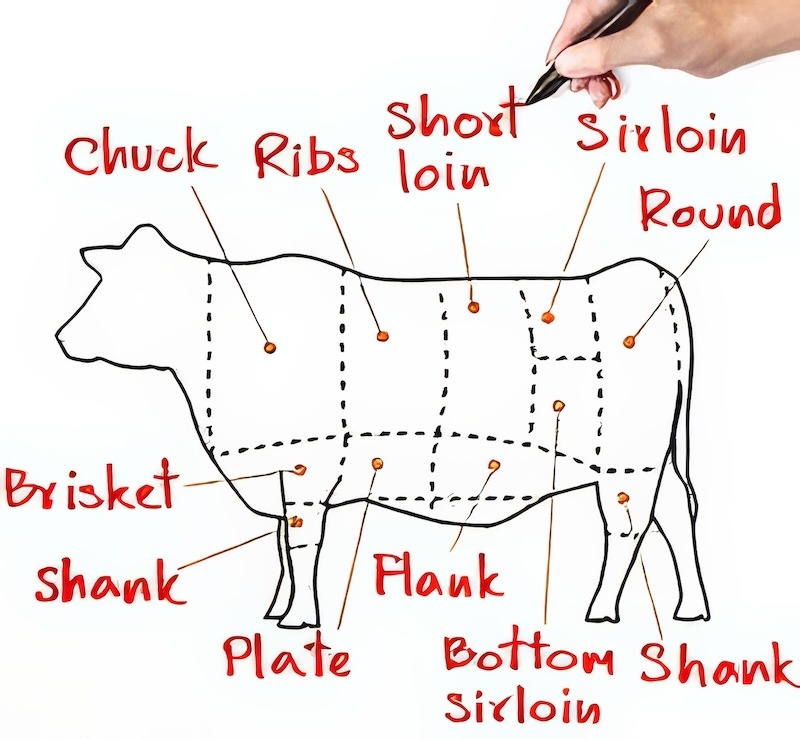 Chuck
Ribs
Short
loin
Sirloin
Round
Brisket
Shank
Plate
Flank
Bottom
sirloin
Shank